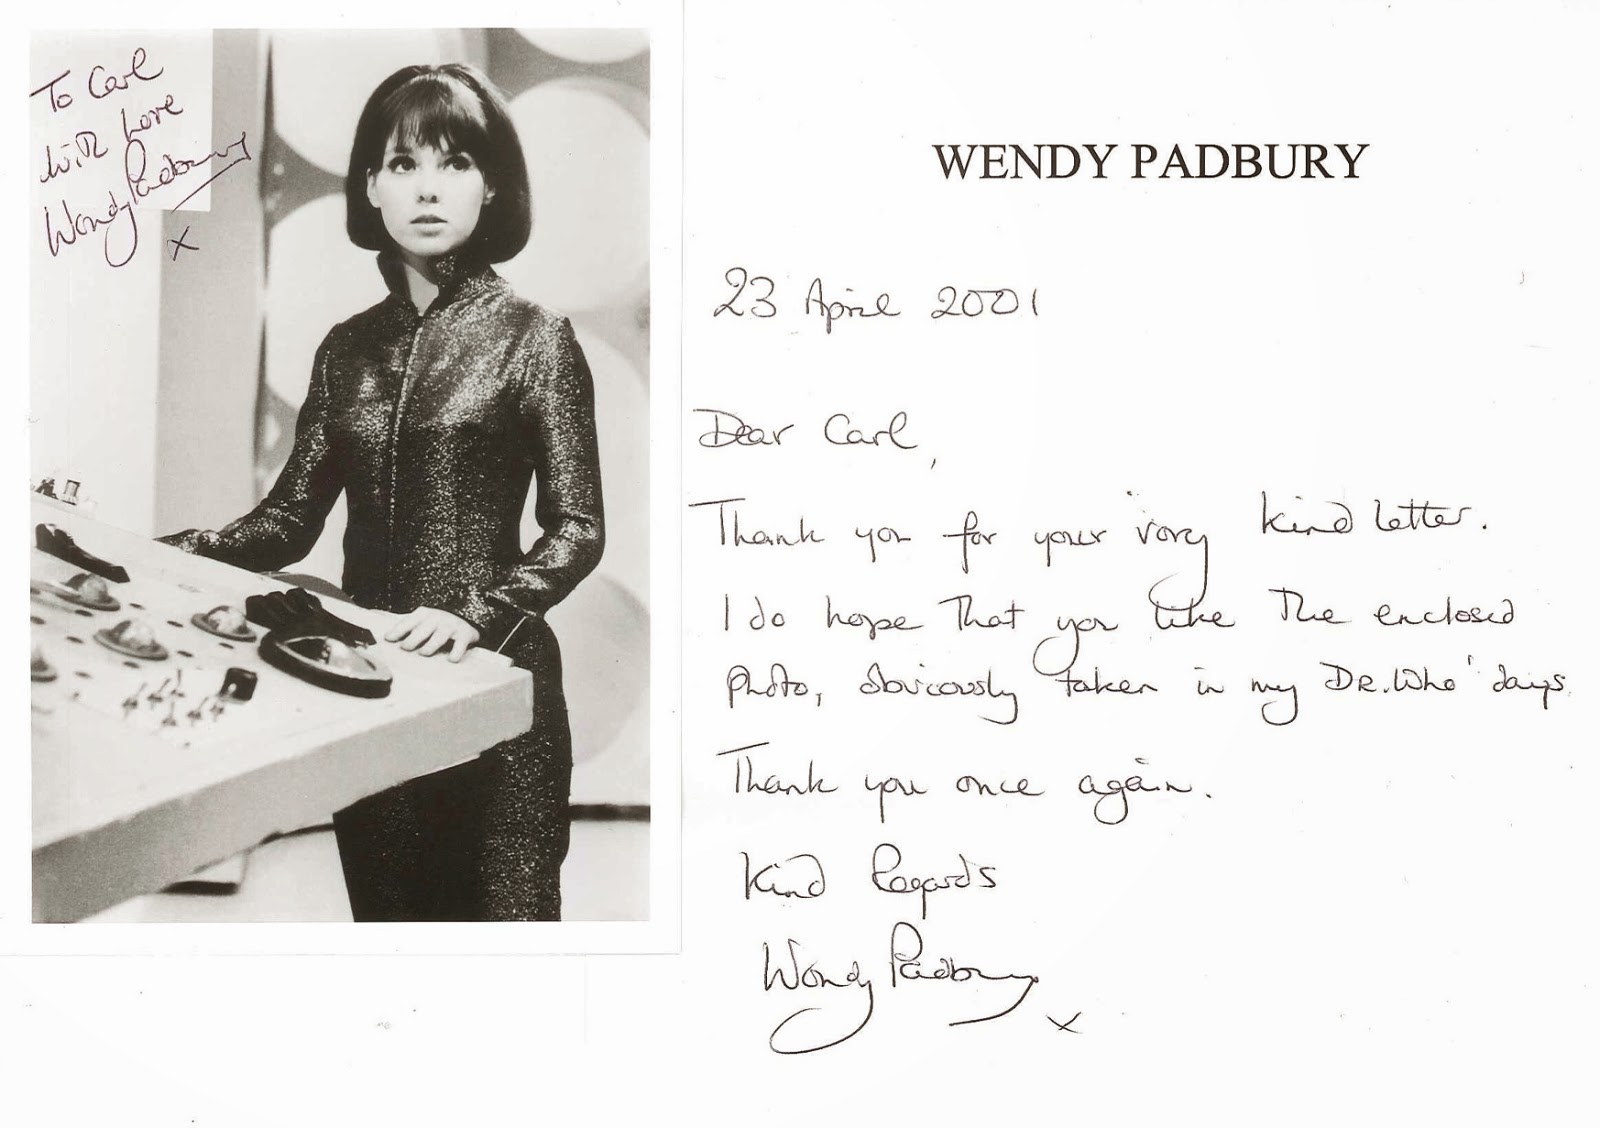 To Carl
with love
Wendy Padbury
x
WENDY PADBURY
23 April 2001
Dear Carl,
Thank you for your very kind letter.
I do hope that you like the enclosed
photo, obviously taken in my 'Dr. Who' days.
Thank you once again.
Kind Regards
Wendy Padbury
x